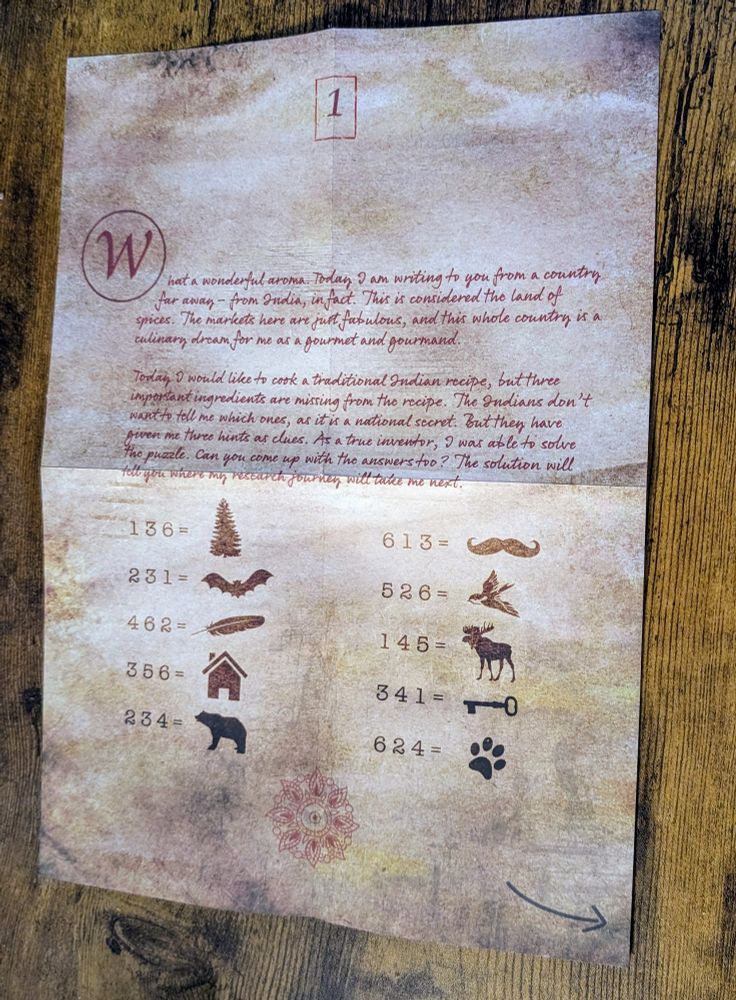 1
What a wonderful aroma. Today I am writing to you from a country
far away – from India, in fact. This is considered the land of
spices. The markets here are just fabulous, and this whole country is a
culinary dream for me as a gourmet and gourmand.
Today I would like to cook a traditional Indian recipe, but three
important ingredients are missing from the recipe. The Indians don't
want to tell me which ones, as it is a national secret. But they have
given me three hints as clues. As a true inventor, I was able to solve
the puzzle. Can you come up with the answers too? The solution will
tell you where my research journey will take me next.
136=
231=
462=
356=
234=
613=
526=
145=
341=
624=